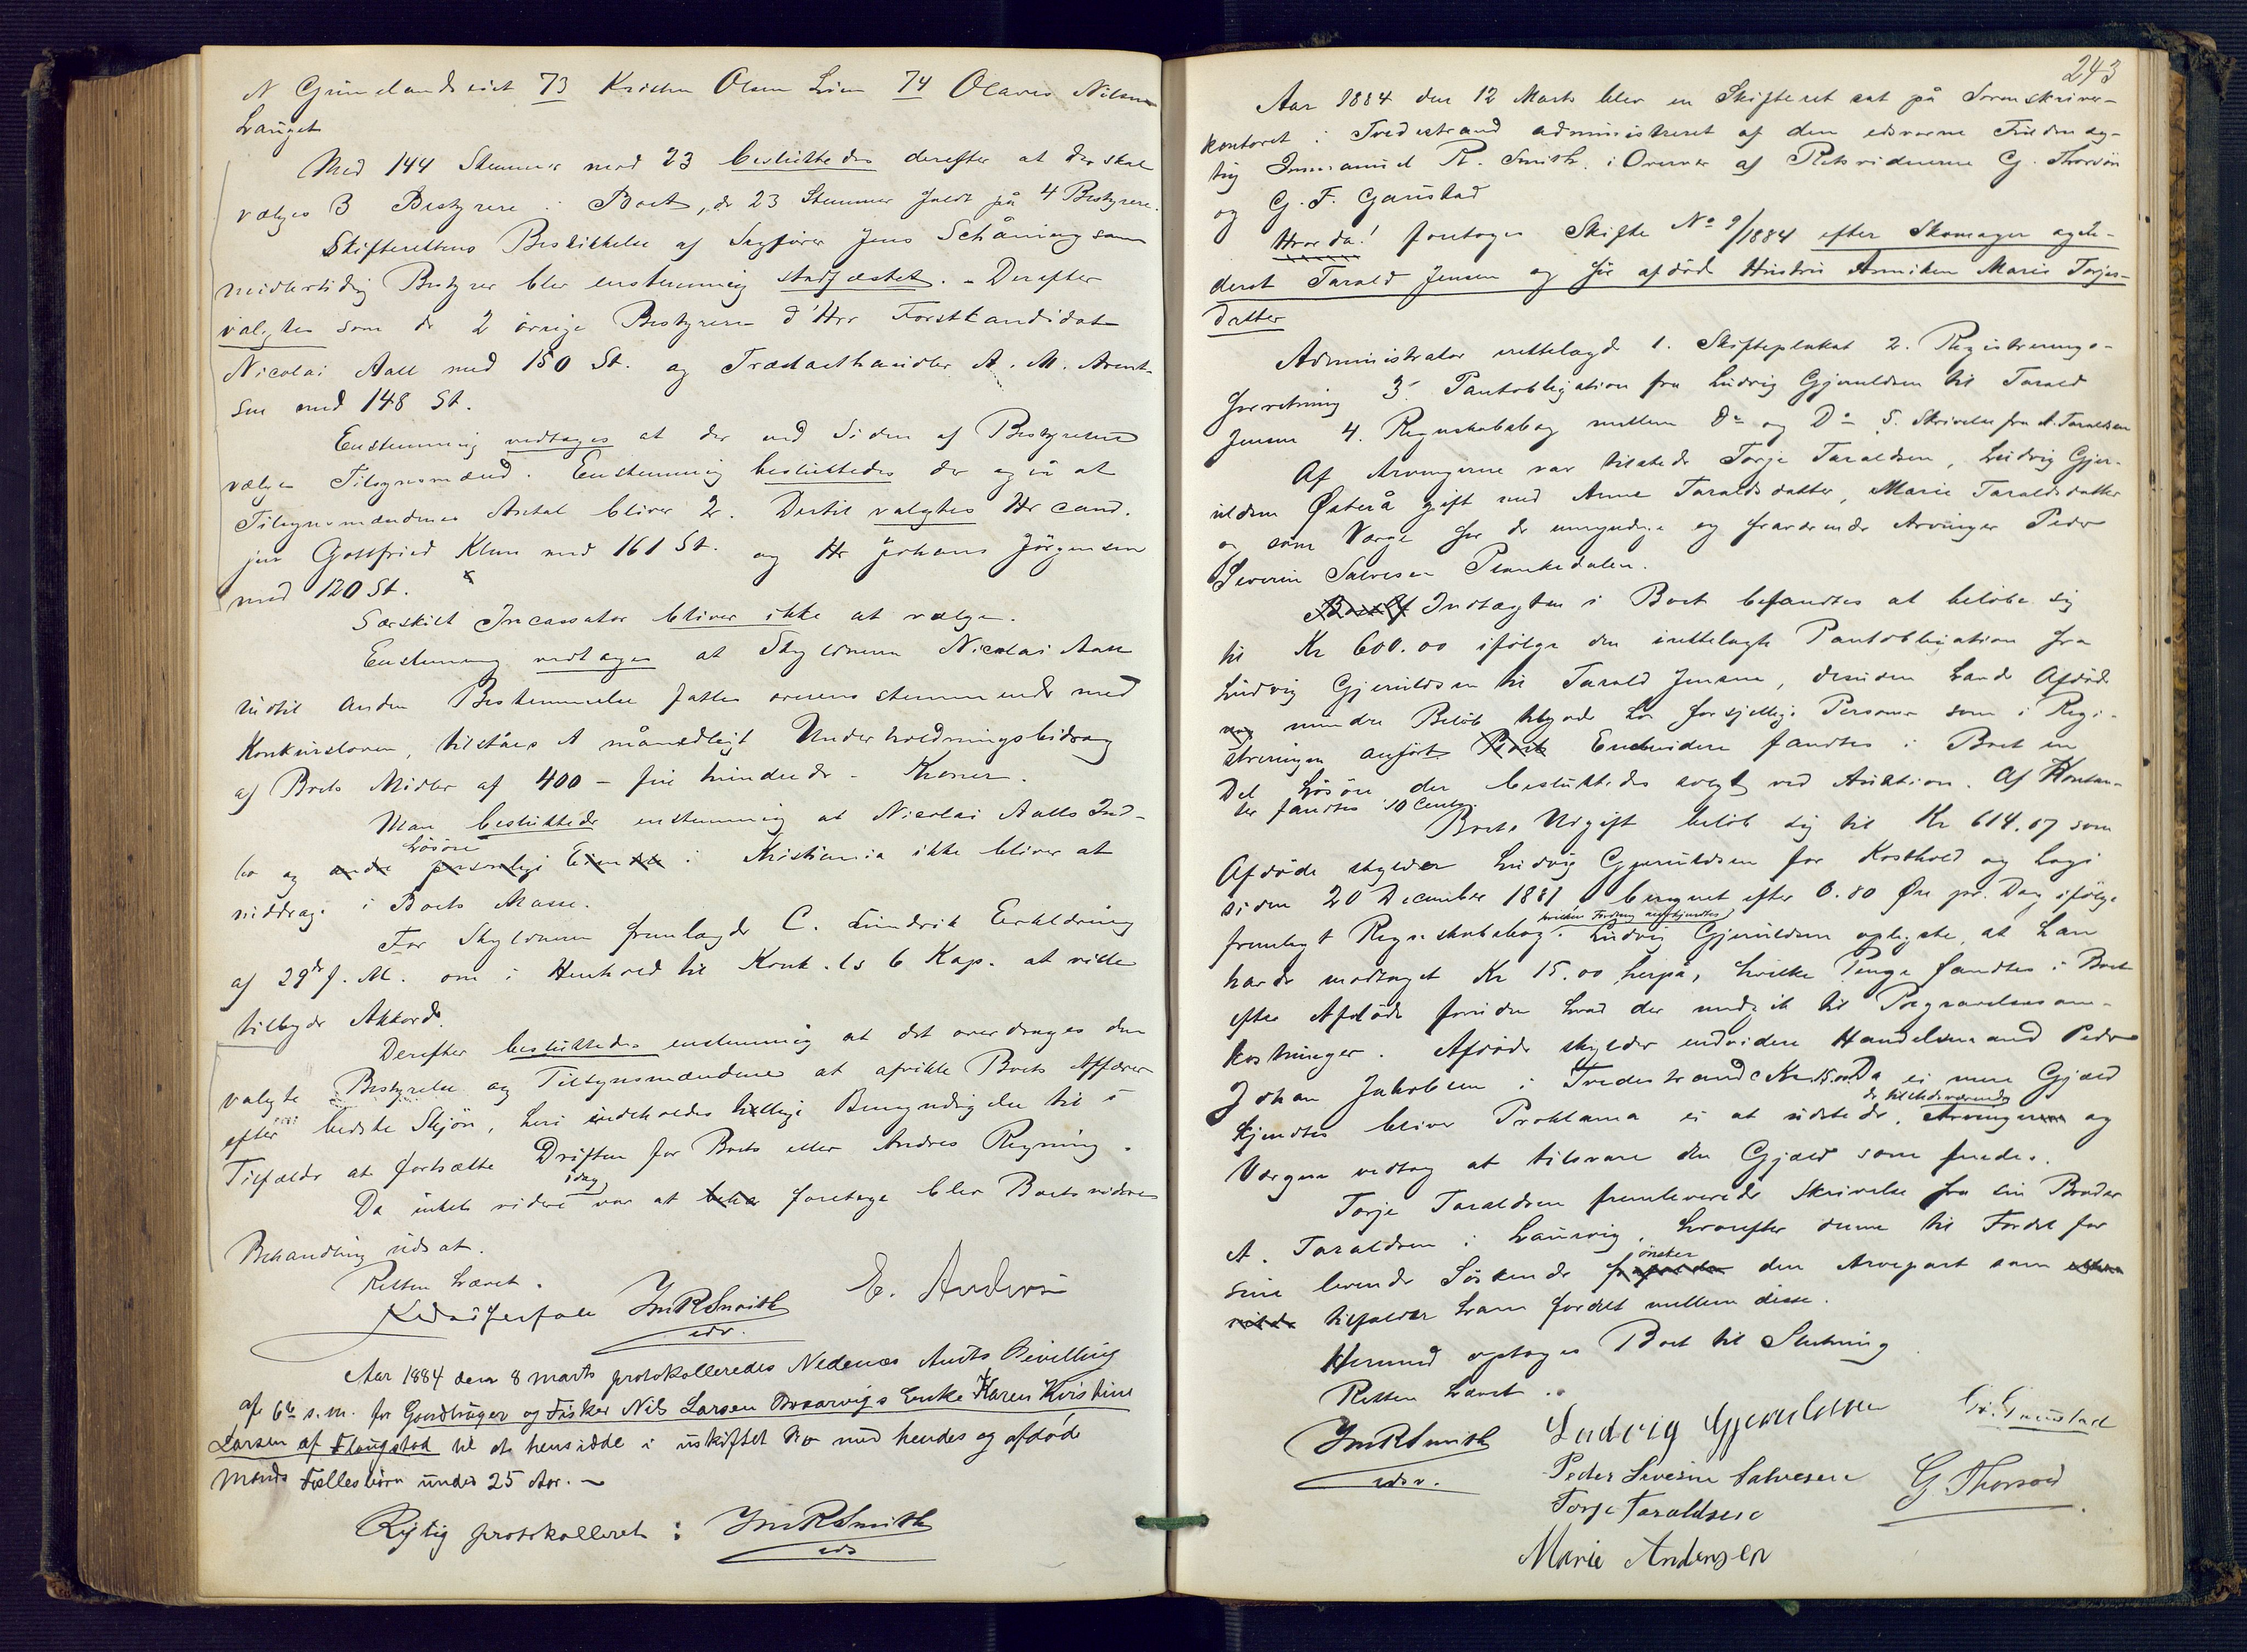 N Grimelandseiet 73 Kristen Olsen Lien 74 Olaves Nilsen
Lauget
Med 144 Stemmer mod 23 besluttedes derefter at der skal
vælges 3 Bestyrere i Boet, de 23 Stemmer faldt på 4 Bestyrere.
Skifterettens Beskikkelse af Sagfører Jens Schåning som
midlertidig Bestyrer blev enstemmig stadfæstet. - Derefter
valgtes som de 2 øvrige Bestyrere d'Hrr Forstkandidat
Nicolai Aall med 150 St. og Trælasthandler A. M. Arent-
sen med 148 St.
Enstemmig vedtages at der ved Siden af Bestyrelsen
vælges Tilsynsmænd. Enstemmig besluttedes der også at
Tilsynsmændenes Antal bliver 2. Dertil valgtes Hr cand.
jur Gottfried Klem med 161 St. og Hr Johans Jörgensen
med 120 St.
Særskilt Incassator bliver ikke at vælge.
Enstemmig vedtages at Skyldneren Nicolai Aall
indtil anden Bestemmelse fattes overensstemmende med
Konkursloven, tilståes et månedligt Underholdningsbidrag
af Boets Midler af 400 - fire hundrede - Kroner.
Man besluttede enstemmig at Nicolai Aalls Ind-
Lösöre
bo og andre personlige Eiendele i Kristiania ikke bliver at
inddrage i Boets Masse.
For Skyldneren fremlagde C. Lundvik Erklæring
af 29de f. M. om i Henhold til Konk.ls 6 Kap. at ville
tilbyde Akkord.
Derefter besluttedes enstemmig at det overdrages den
valgte Bestyrelse og Tilsynsmændene at afvikle Boets Affærer
efter bedste Skjön, heri indeholdes tillige Bemyndigelse til i
Tilfælde at fortsætte Driften for Boets eller Andres Regning.
idag
Da intet videre var at foretage blev Boets videre
Behandling udsat.
Retten hævet.
ImRSmith E. Anders
edv.
Aar 1884 den 8 marts protokolleredes Nedenæs Amts Bevilling
af 6te s.m. for Gaardbruger og Fisker Nils Larsen Enke Karen Kristine
Larsen af Flaugstad til at hensidde i uskiftet Bo med hendes og afdøde
Mands Fællesbörn under 25 Aar. -
Rigtig protokolleret: ImRSmith
edv
243
Aar 1884 den 12 Marts blev en Skifteret sat på Sorenskriver-
kontoret i Tvedestrand administreret af den edsvorne Fuldmæg-
tig Immanuel R. Smith i Overvær af Retsvidnerne G. Thorsön
og G. F. Gaustad
Hvorda! foretoges Skifte No 9/1884 efter Skomager
Tarald Jensen og för afdöd Hustru Anniken Marie Torjes-
datter
Administrator irettelagde 1. Skifteplakat 2. Registrerings-
forretning 3. Pantobligation fra Ludvig Gjeruldsen til Tarald
Jensen 4. Regnskabsbog mellem Do og Do 5. Skrivelse fra A. Taraldsen
Af Arvingerne var tilstede Torje Taraldsen, Ludvig Gjer-
uldsen Österå gift med Anne Taraldsdatter, Marie Taraldsdatter
og som Værge for de umyndige og fraværende Arvinger Peder
Severin Salvesen Plankedalen.
Indtægten i Boet befandtes at beløbe sig
til Kr 600.00 ifølge den irettelagte Pantobligation fra
Ludvig Gjeruldsen til Tarald Jensen, desuden havde Afdöde
mindre Beløb tilgode hos forskjellige Personer som i Regi-
streringen anfört. Endvidere fandtes i Boet en
Del Lösöre der besluttedes solgt ved Auktion. Af Kontan-
ter fandtes 10 Cents.
Boets Udgift beløb sig til Kr 614.07 som
Afdöde skylder Ludvig Gjeruldsen for Kosthold og Logi
siden 20 December 1881 beregnet efter 0.80 Øre pr. Dag ifølge
hvilken Fordring
fremlagt Regnskabsbog. Ludvig Gjeruldsen oplyste, at han
havde modtaget Kr 15.00 herpå, hvilke Penge fandtes i Boet
efter Afdöde foruden hvad der medgik til Begravelsesom-
kostninger. Afdöde skylder endvidere Handelsmand Peder
Johan Jakobsen i Tvedestrand Kr Da ei mere Gjæld
de tilstedeværende
kjendtes bliver Proklama ei at udstede. Arvingerne og
Værgen vedtog at tilsvare den Gjæld som findes.
Torje Taraldsen fremleverede Skrivelse fra sin Broder
A. Taraldsen i Laurvig, hvorefter denne til Fordel for
önsker
sine levende Söskende den Arvepart som
tilfalder ham fordelt mellem disse.
Hermed optoges Boet til Slutning
Retten hævet.
ImRSmith Ludvig Gjeruldsen G. F. Gaustad
edsv. Peder Severin Salvesen G. Thorsön
Torje Taraldsen
Marie Andersen